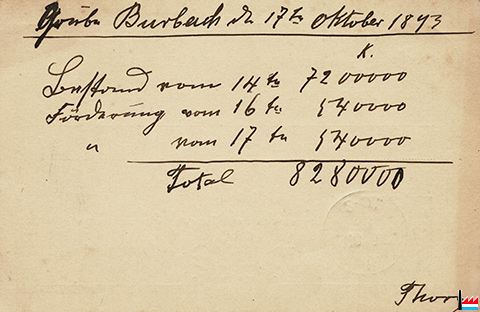 Grube Burbach d 17ten Oktober 1893
K.
Bestand vom 14ten 7200000
Förderung vom 16ten 540000
" vom 17ten 540000
Total 8280000